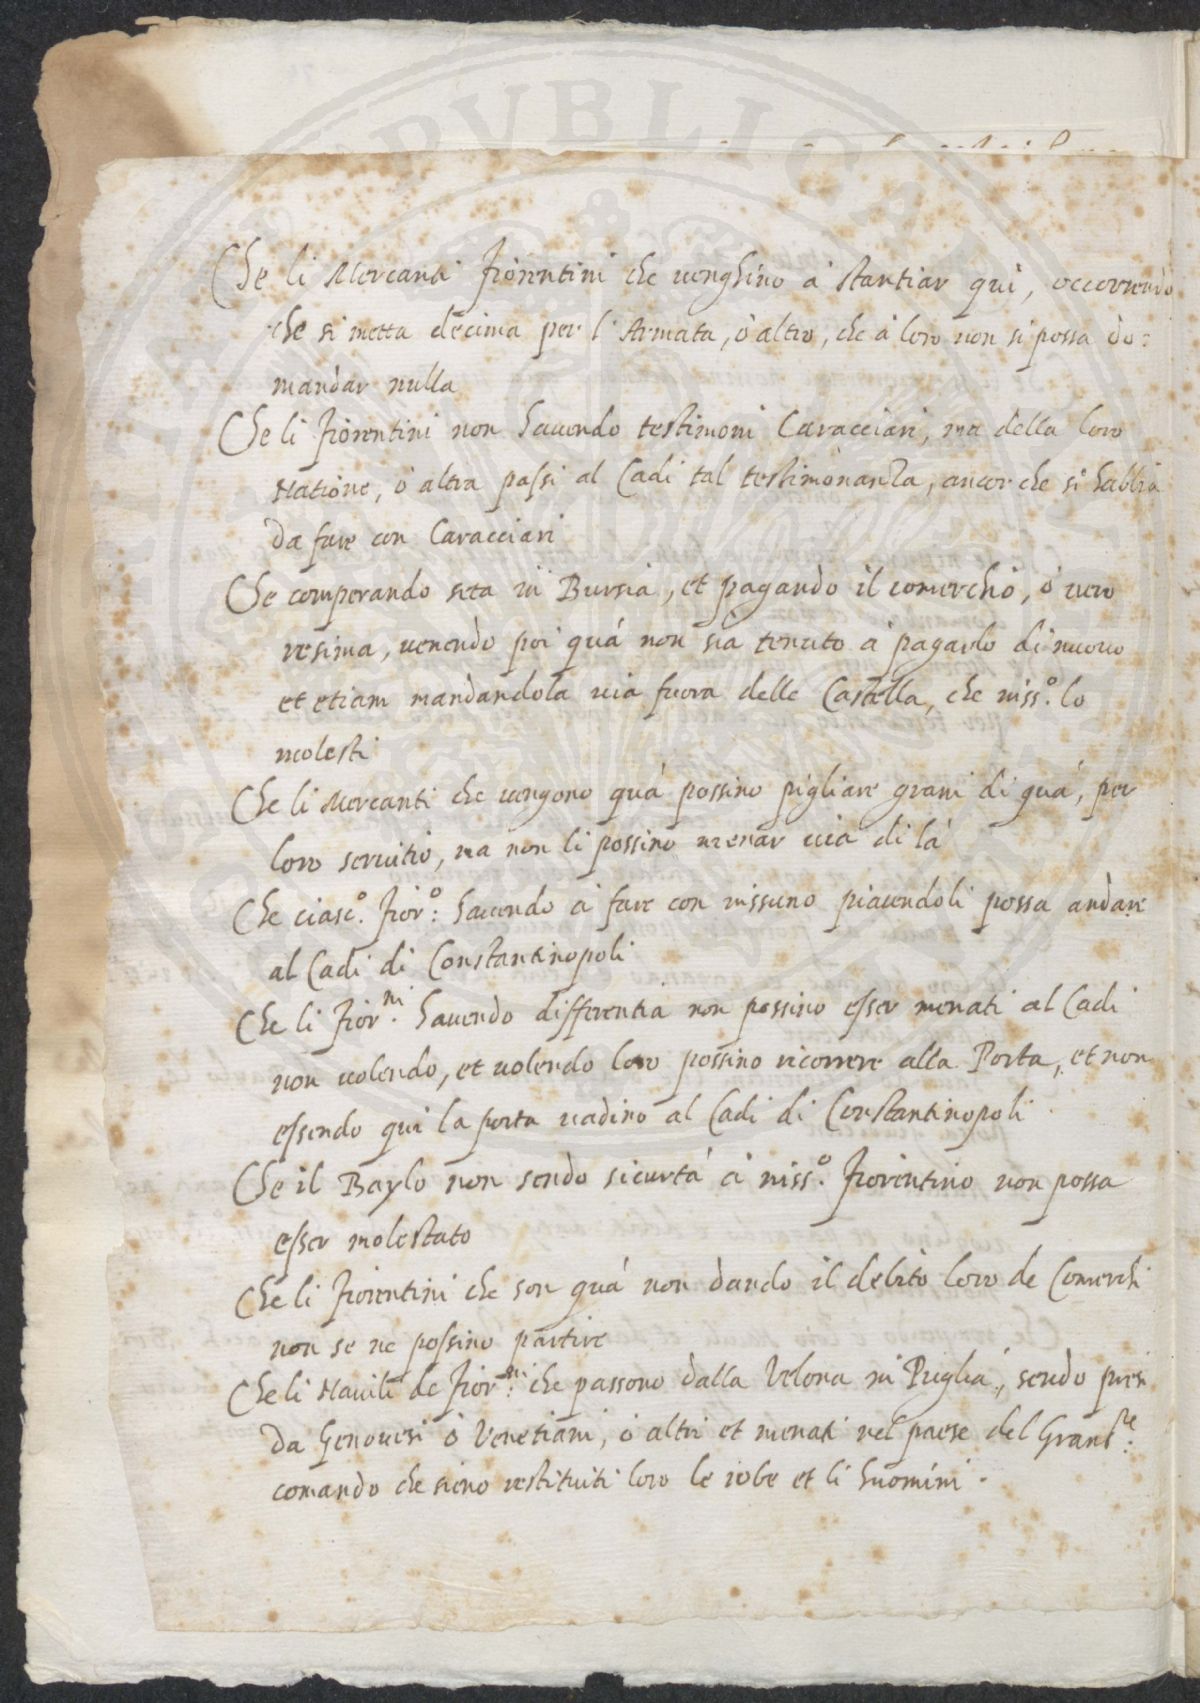 Che li Mercanti Fiorentini che venghino à stantiar qui, occorrendo
che si metta decima per l'Armata, ò altro, che à loro non si possa do:
mandar nulla
Che li Fiorentini non havendo testimoni Caracciari, ma della loro
Natione, ò altra passi al Cadi tal testimonanza, ancor che si habbia
da fare con Caracciari
Che comperando seta in Bursia, et pagando il comerchio, ò vero
resima, venendo poi quà non sia tenuto à pagarlo di nuovo
et etiam mandandola via fuora delle Castella, che niss.º lo
molesti
Che li Mercanti che vengono quà possino pigliare grani di quà, per
loro servitio, ma non li possino menar via di là
Che ciasc.º Fior.º: havendo à fare con nissuno piacendoli possa andare
al Cadi di Constantinopoli
Che li Fior.ni havendo differentia non possino esser menati al Cadi
non volendo, et volendo loro possino ricorrere alla Porta, et non
essendo qui la porta vadino al Cadi di Constantinopoli
Che il Baylo non sendo sicurtà à niss.º Fiorentino non possa
esser molestato
Che li Fiorentini che son quà non dando il debito loro de Comerchi
non se ne possino partire
Che li Navili de Fior.ni: che passono dalla Velona in Puglia, sendo presi
da Genovesi ò Venetiani, ò altri et menati nel paese del Gran S.re:
comando che sieno restituiti loro le robe et li huomini.
PVBLICA